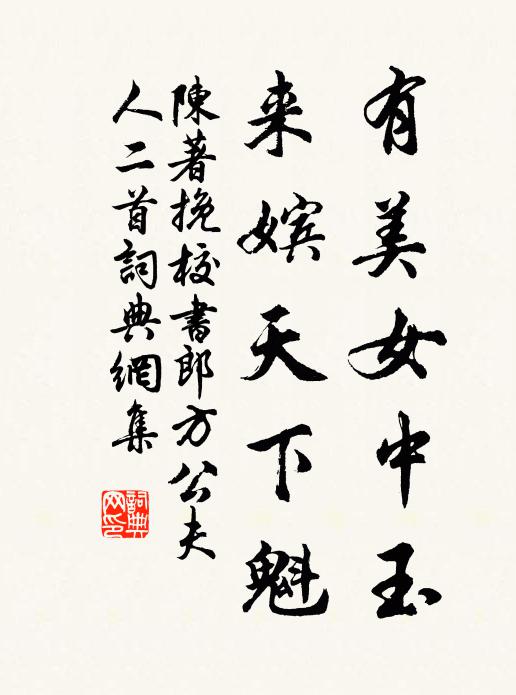 有美女中玉
来嬪天下魁
陳著挽校書郎方公夫
人二首詞典網集
詞典网印